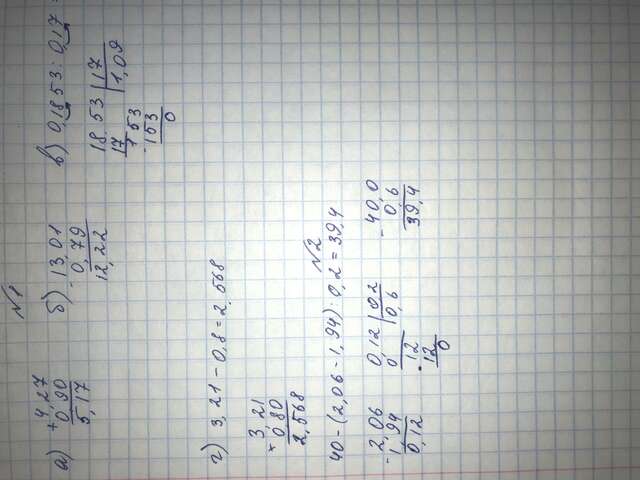 №1
а) + 4,27
0,90
5,17
б) - 13,01
0,79
12,22
в) 0,1853 : 0,17 =
18,53 | 17
17 | 1,09
153
- 153
0
г) 3,21 - 0,8 = 2,568
× 3,21
0,80
2,568
№2
40 - (2,06 - 1,94) : 0,2 = 39,4
- 2,06
1,94
0,12
0,12 | 0,2
0 | 0,6
12
- 12
0
- 40,0
0,6
39,4